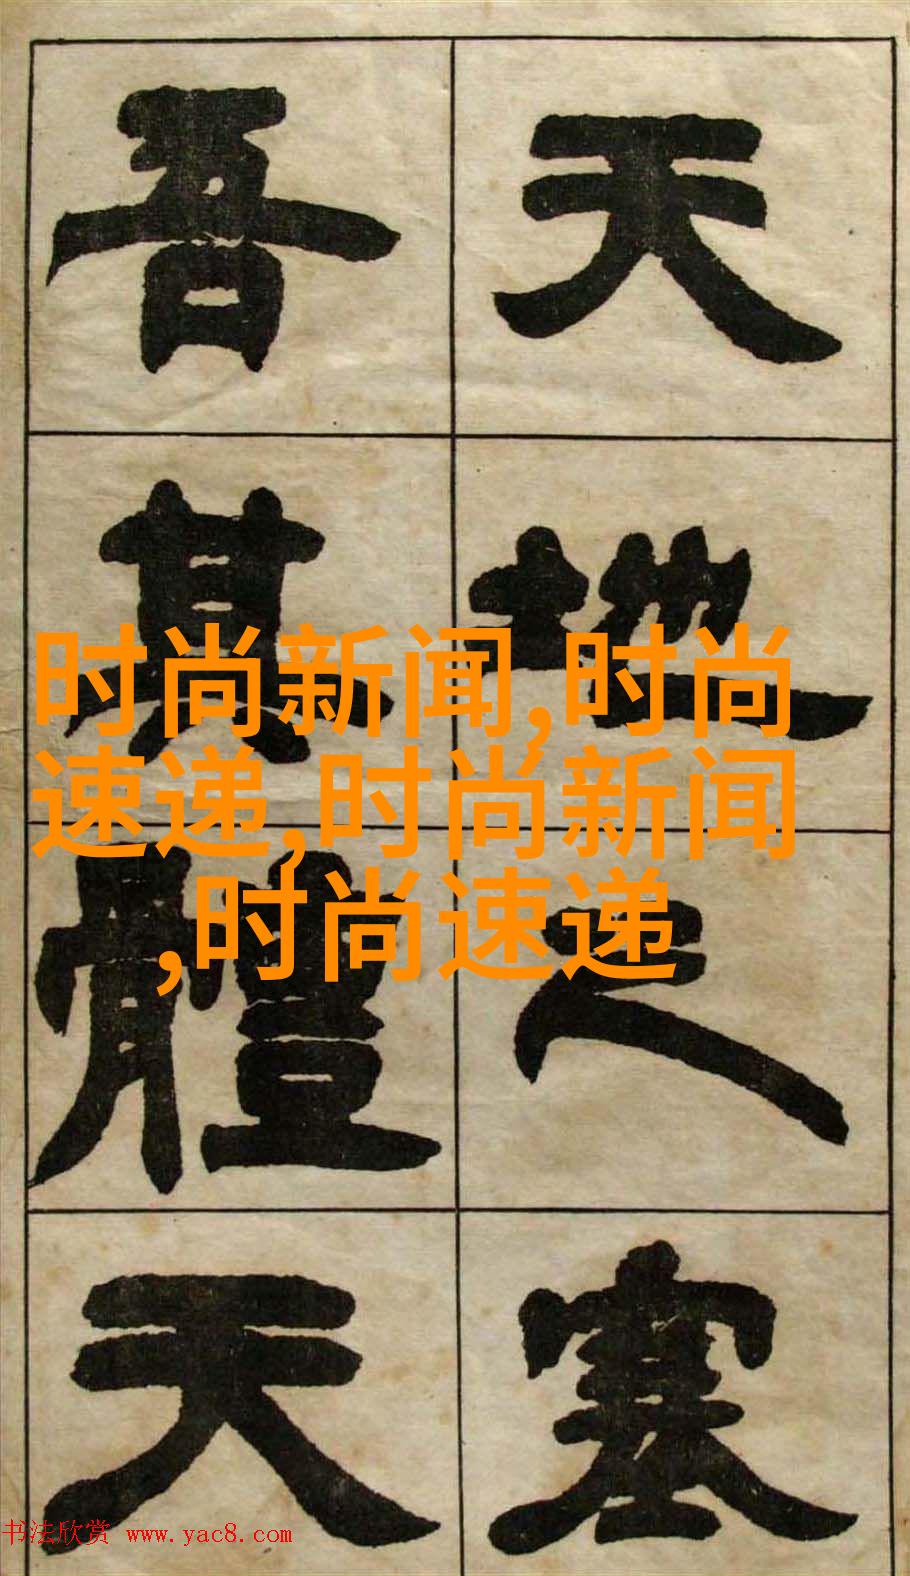 天地之塞
吾其體天
时尚新闻,时尚
速递,时尚新闻
,时尚速递
书法欣赏 www.yac8.com